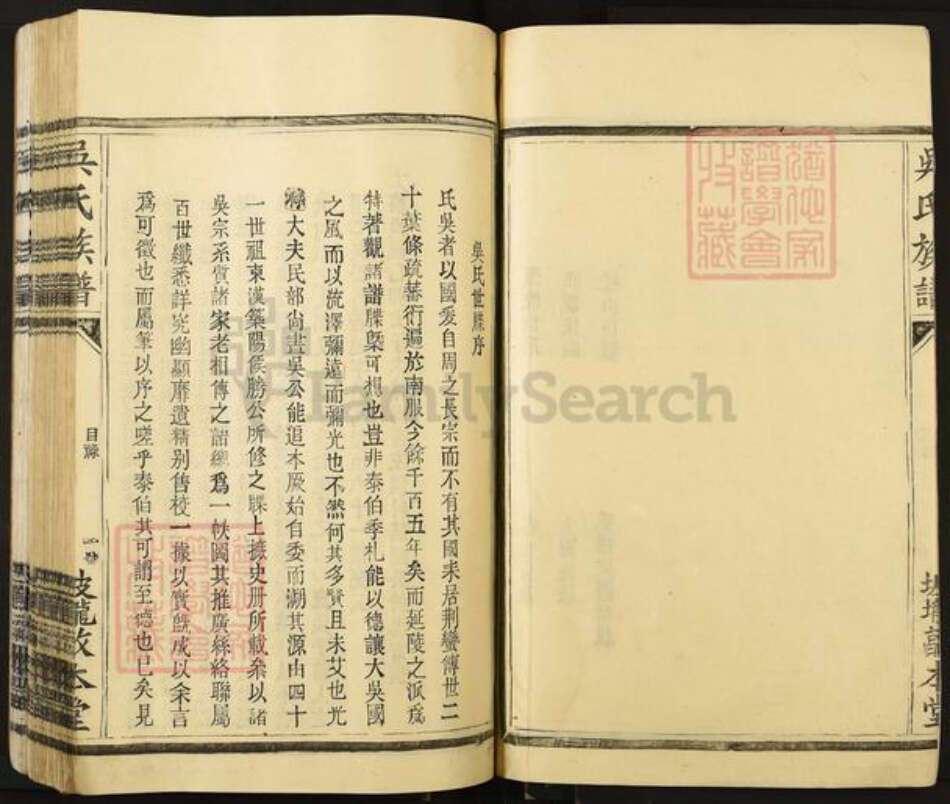 吳氏族譜
吳氏世牒序
氏吳者以國爰自周之長宗而不有其國来居荆蠻傳世二
十葉條疏蕃衍遍於南服今餘千百五年矣而延陵之派爲
特著觀諸譜牒槩可想也豈非泰伯季札能以德讓大吳國
之風而以流澤彌遠而彌光也不然何其多賢且未艾也光
祿大夫民部尚書吳公能追本厥始自委而溯其源由四十
一世祖東漢築陽侯勝公所修之牒上摭史册所載叅以諸
吳宗系質諸家老相傳之語總爲一帙閱其推廣絲絡聯屬
百世纖悉詳究幽顯靡遺精别售校一據以實旣成以余言
爲可徵也而屬筆以序之嗟乎泰伯其可謂至德也已矣見
吳氏族譜
目錄
一卷
敦本堂
FamilySearch